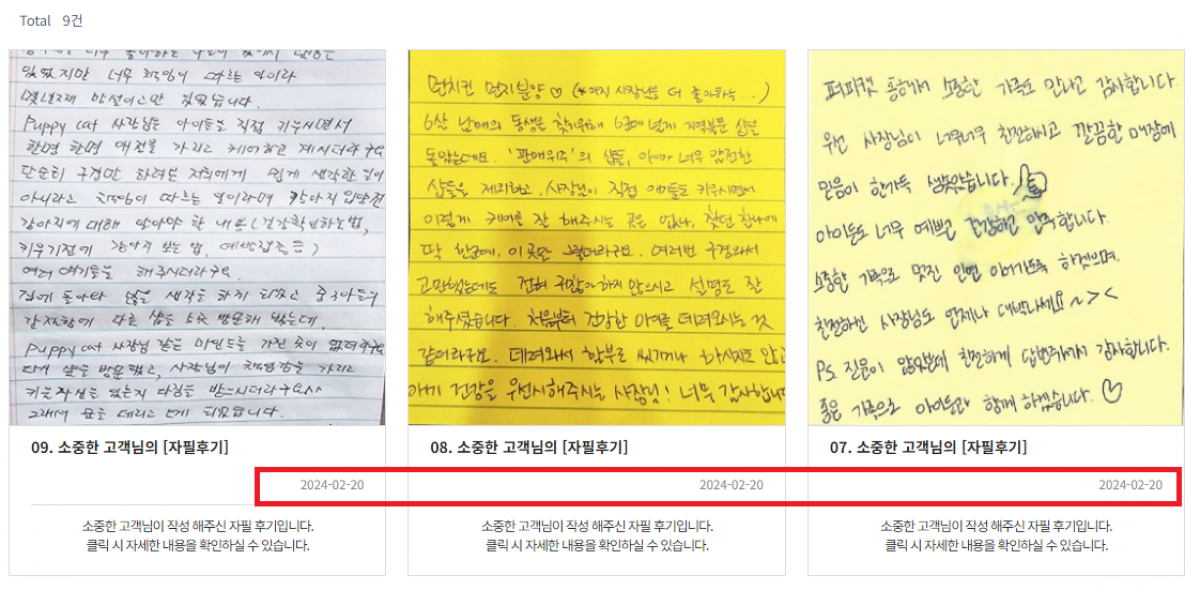 Total 9건
있었지만 너무 책임이 따르는 일이라
몇년째 망설이고만 있었습니다.
Puppy cat 사장님은 아이들을 직접 키우시면서
한명 한명 애정을 가지고 케어하고 계시더라구요
단순히 구경만 하려던 저희에게 쉽게 생각할 일이
아니라고 책임이 따르는 일이라며 강아지 입양전
강아지에 대해 알아야 할 내용(건강확인하는법,
키우기전에 강아지 보는 법, 예방접종 등)
여러 얘기들을 해주시더라구요.
집에 돌아와 많은 생각을 하게 되었고
같은 마인드를 가진 곳이 없더라구요
그래서 오늘 데리고 오게 되었습니다.
먼치킨 먼지분양♡ (*아직 사장님을 더 좋아하는...)
6살 남매의 동생을 찾기위해 6군데 넘게 지역북문 샵을
돌았는데요. '판매위주'의 샵들, 아이가 너무 얌전한
샵들을 제외하고, 사장님이 직접 애기들도 키우시면서
이렇게 케어를 잘 해주시는 곳은 없나, 찾던 찰나에
딱 한군데, 이곳은 그렇더라구요. 여러번 구경와서
고민했는데도 전혀 귀찮아 하지 않으시고 설명도 잘
해주셨습니다. 처음부터 건강한 아이를 데려오시는 것
같더라구요. 데려와서 함부로 씻기거나 하시지도 않고
아기 건강을 우선시해주시는 사장님! 너무 감사합니다
퍼피캣 통해서 소중한 가족도 만나고 감사합니다.
우선 사장님이 너무너무 친절하시고 깔끔한 매장에
믿음이 한가득 생겼었습니다.
아이들도 너무 예쁘고 건강해서 만족합니다.
소중한 가족으로 멋진 인연 이어가도록 하겠으며,
친절하신 사장님도 언제나 대박나세요~><
PS 질문이 많았는데 친절하게 답변주셔서 감사합니다.
좋은 가족으로 아이들과 함께 하겠습니다. ♡
09. 소중한 고객님의 [자필후기]
08. 소중한 고객님의 [자필후기]
07. 소중한 고객님의 [자필후기]
2024-02-20
2024-02-20
2024-02-20
소중한 고객님이 작성 해주신 자필 후기입니다.
클릭 시 자세한 내용을 확인하실 수 있습니다.
소중한 고객님이 작성 해주신 자필 후기입니다.
클릭 시 자세한 내용을 확인하실 수 있습니다.
소중한 고객님이 작성 해주신 자필 후기입니다.
클릭 시 자세한 내용을 확인하실 수 있습니다.